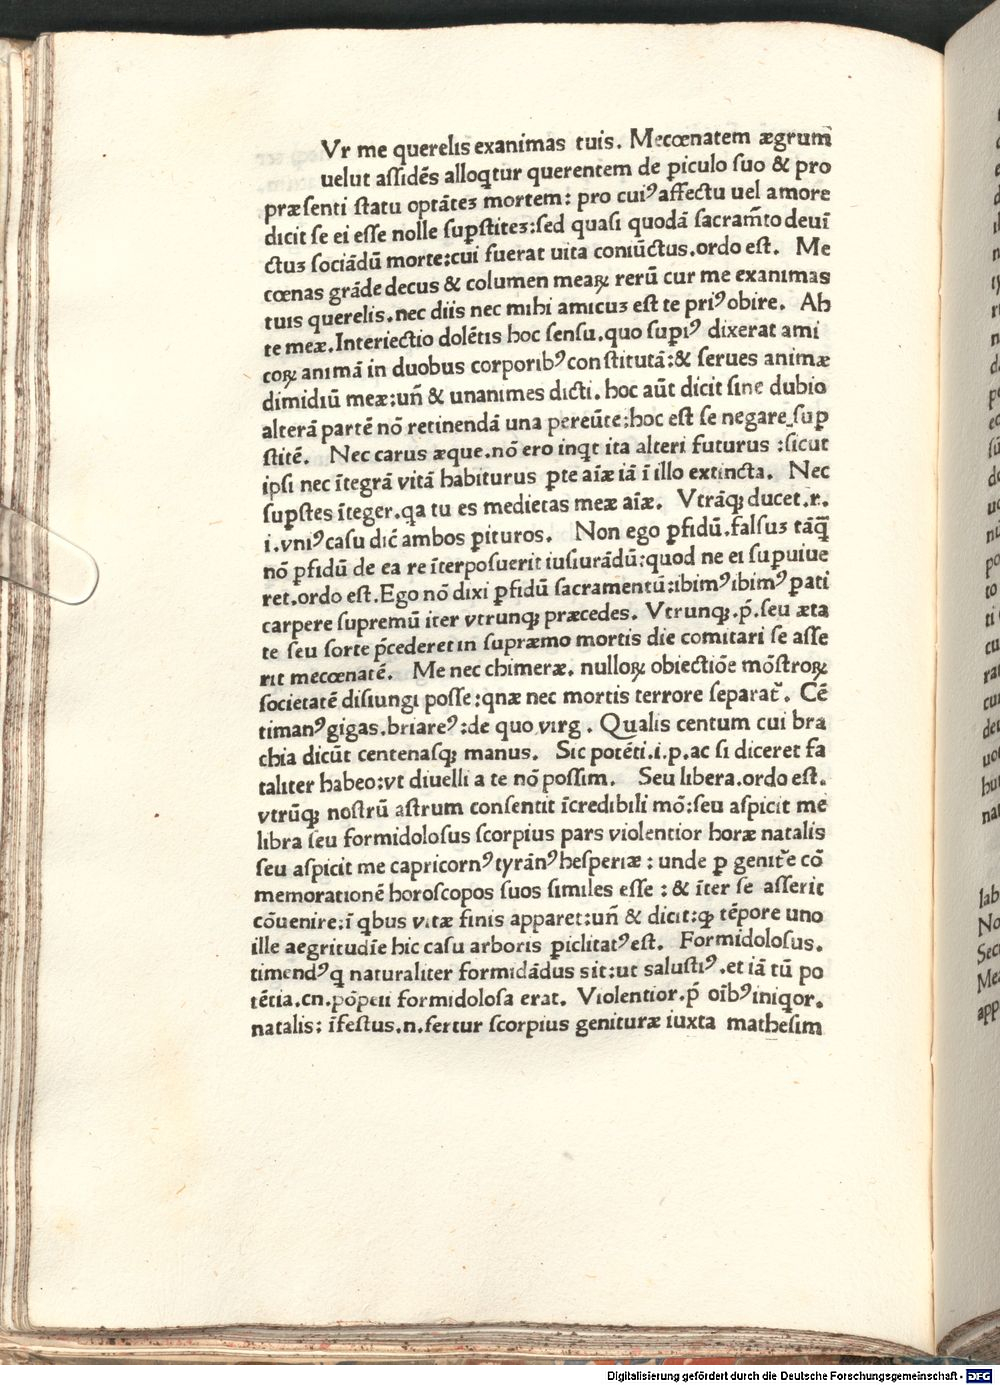 Vr me querelis exanimas tuis. Mecœnatem ægrum
uelut assidēs alloqtur querentem de ꝑiculo suo & pro
præsenti statu optātez mortem: pro cuiꝰ affectu uel amore
dicit se ei esse nolle suꝑstitez: sed quasi quodā sacramēto deuī
ctuz sociādū morte: cui fuerat uita coniūctus. ordo est. Me
cœnas grāde decus & columen meaꝝ rerū cur me exanimas
tuis querelis. nec diis nec mihi amicuz est te priꝰ obire. Ah
te meæ. Interiectio dolētis hoc sensu. quo supiꝰ dixerat ami
coꝝ animā in duobus corporibꝰ constitutā: & serues animæ
dimidiū meæ: un̄ & unanimes dicti. hoc aūt dicit sine dubio
alterā partē nō retinendā una pereūte: hoc est se negare suꝑ
stitē. Nec carus æque. nō ero inqt ita alteri futurus : sicut
ipsi nec ītegrā vitā habiturus ꝑte aīæ iā ī illo extincta. Nec
suꝑstes īteger. qa tu es medietas meæ aīæ. Vtrāqꝫ ducet. r.
i. vniꝰ casu dic̄ ambos ꝑituros. Non ego ꝑfidū. falsuz tāq̄
nō ꝑfidū de ea re īterposuerit iusiurādū: quod ne ei supuiue
ret. ordo est. Ego nō dixi ꝑfidū sacramentū: ibimꝰ ibimꝰ pati
carpere supremū iter vtrunqꝫ præcedes. Vtrunqꝫ. p̄. seu æta
te seu sorte p̄cederet in supræmo mortis die comitari se asse
rit mecœnatē. Me nec chimeræ. nulloꝝ obiectiōe mōstroꝝ
societatē disiungi posse: qnæ nec mortis terrore separat̄. Cē
timanꝰ gigas. briareꝰ: de quo virg. Qualis centum cui bra
chia dicūt centenasqꝫ manus. Sic potēti. i. p. ac si diceret fa
taliter habeo: vt diuelli a te nō possim. Seu libera. ordo est.
vtrūqꝫ nostrū astrum consentit īcredibili mō: seu aspicit me
libra seu formidolosus scorpius pars violentior horæ natalis
seu aspicit me capricornꝰ tyrānꝰ hesperiæ : unde ꝑ genit̄e cō
memorationē horoscopos suos similes esse : & īter se asserit
cōuenire: ī qbus vitæ finis apparet: un̄ & dicit: ꝙ tēpore uno
ille aegritudīe hic casu arboris ꝑiclitatꝰ est. Formidolosus.
timendꝰ q naturaliter formidādus sit: ut salustiꝰ. et iā tū po
tētia. cn. pōpeii formidolosa erat. Violentior. p̄ oībꝰ iniqor.
natalis: īfestus. n. fertur scorpius genituræ iuxta mathesim
lab
No
Secu
Mea
app
Digitalisierung gefördert durch die Deutsche Forschungsgemeinschaft - DFG